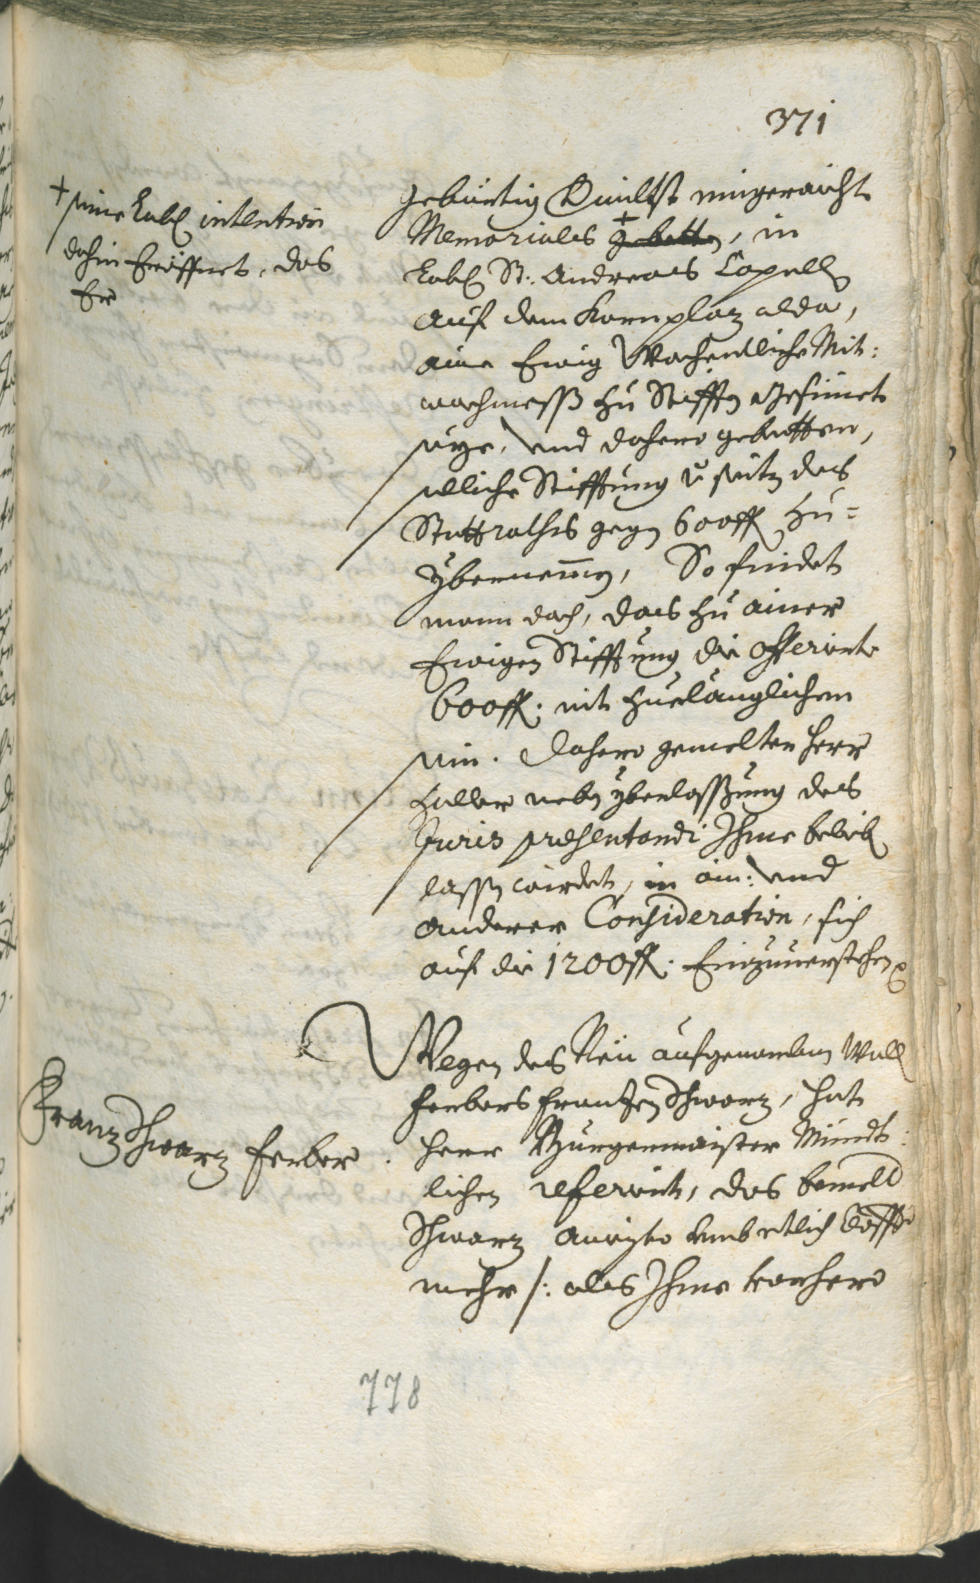 371
† seine Löbl intention
dahin Eröffnet, das
Er
gebürtig eingeraicht
Memoriales gebetten, in
Löbl St. Andreæs Capelln
auf dem Kornplaz alda,
aine Ewig Wochentliche Mit:
wochmess zu Stifften gesinnet
seye, und dahero gebetten,
selliche Stifftung seiten des
Stattraths gegen 600 fl zu=
ybernemen, So findet
mann doch, das zu ainer
Ewigen Stifftung die offerierte
600 fl: nit zuelänglichen
sein. Dahero gemelten Herr
Haller neben yberlassung des
Juris præsentandi Ihme belieb
lassen wirdet, in ain: und
anderer Consideration, sich
auf die 1200 fl. Einzuuerstehen
Franz Schwarz Ferber.
Wegen des Neu aufgenomben Woll
ferbers Franzen Schwarz, hat
Herr Burgermaister Mündt:
lichen referiert, das bemelt
Schwarz anyezo umb etlich
mehr /: als Ihme vorhero
778